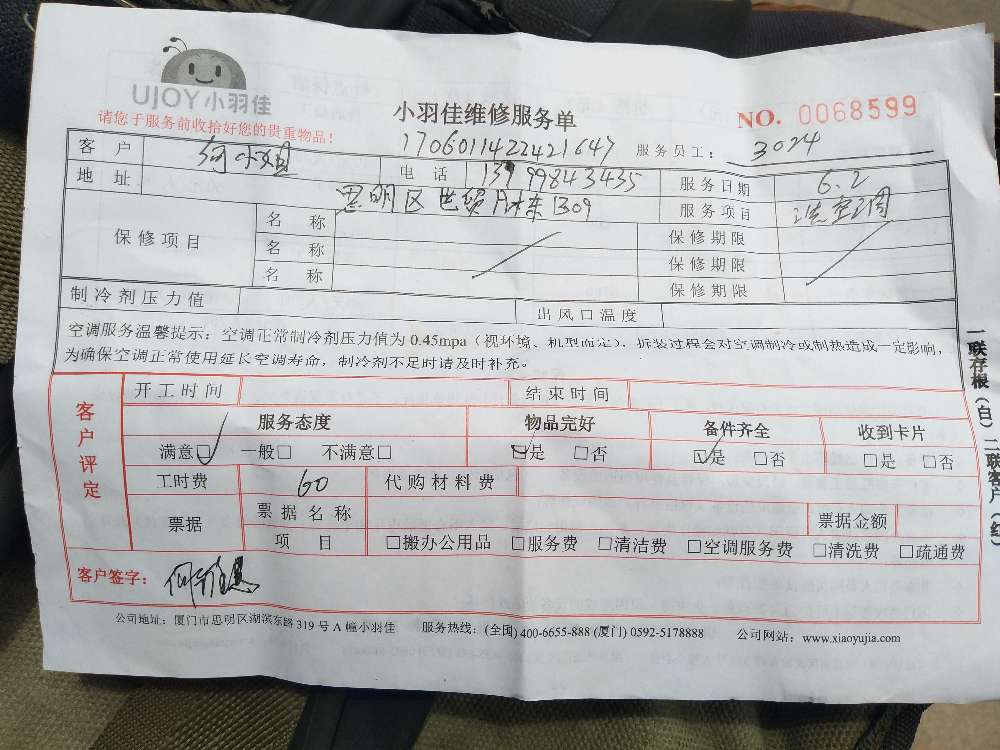 UJOY小羽佳
请您于服务前收拾好您的贵重物品！
小羽佳维修服务单
NO. 0068599
1706011422421647
服务员工： 3024
客户 何小姐 电话 13799843435 服务日期 6.2
地址 思明区 1309 服务项目 洗空调
保修项目 名称 保修期限
名称 保修期限
名称 保修期限
制冷剂压力值 出风口温度
空调服务温馨提示：空调正常制冷剂压力值为 0.45mpa（视环境、机型而定）、拆装过程会对空调制冷或制热造成一定影响，
为确保空调正常使用延长空调寿命，制冷剂不足时请及时补充。
客户评定
开工时间 结束时间
服务态度 物品完好 备件齐全 收到卡片
满意□ 一般□ 不满意□ □是 □否 □是 □否 □是 □否
工时费 60 代购材料费
票据 票据名称 票据金额
项目 □搬办公用品 □服务费 □清洁费 □空调服务费 □清洗费 □疏通费
客户签字：
公司地址：厦门市思明区湖滨东路 319 号 A 幢小羽佳 服务热线：(全国) 400-6655-888 (厦门) 0592-5178888 公司网站：www.xiaoyujia.com
一联存根（白）二联客户（红）